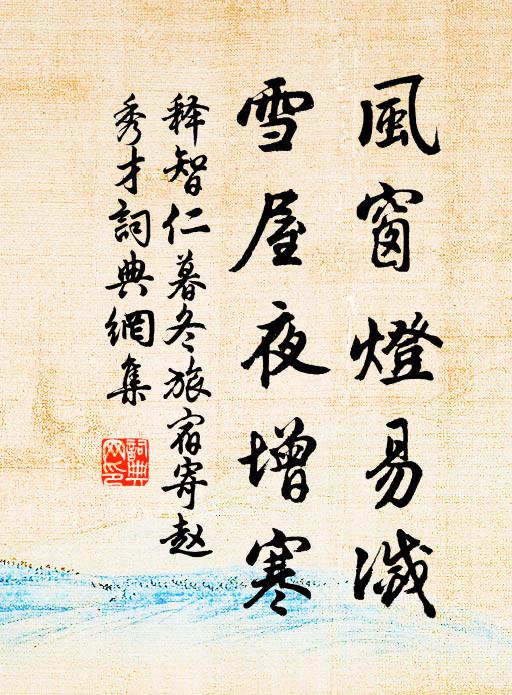 風窗燈易滅
雪屋夜增寒
释智仁暮冬旅宿寄赵
秀才詞典網集
詞典
网印